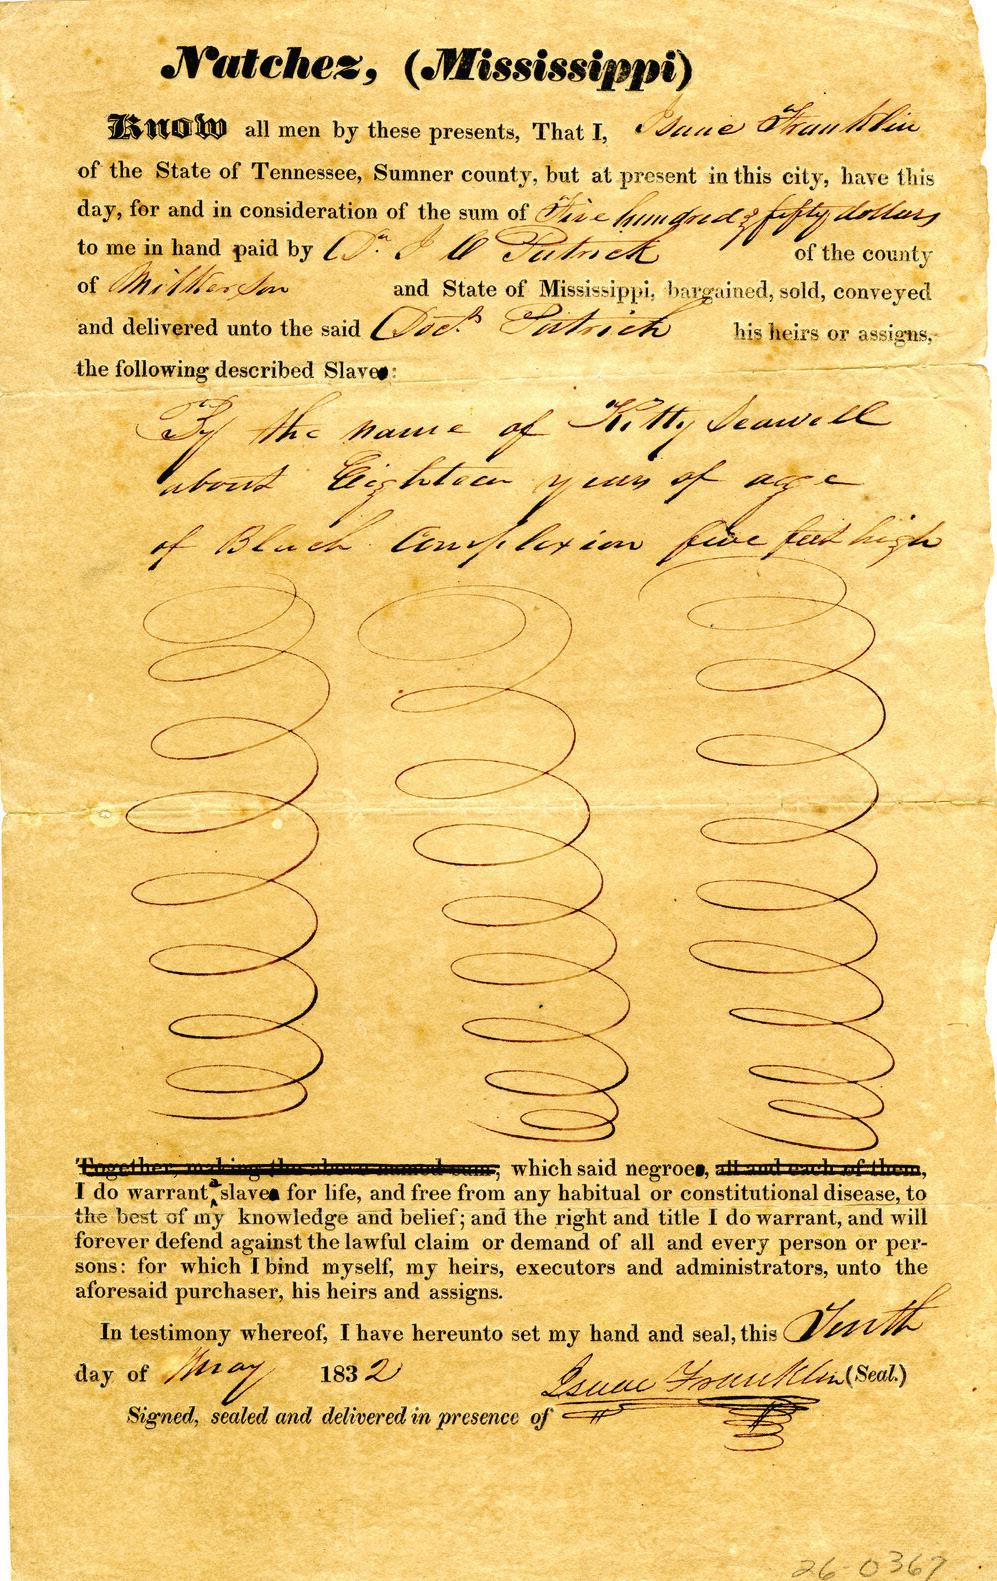 Natchez, (Mississippi)
Know all men by these presents, That I, Isaac Franklin
of the State of Tennessee, Sumner county, but at present in this city, have this
day, for and in consideration of the sum of Five hundred & fifty dollars
to me in hand paid by Dr. J C Patrick of the county
of Wilkerson and State of Mississippi, bargained, sold, conveyed
and delivered unto the said Doct. Patrick his heirs or assigns,
the following described Slave:
By the name of Kitty Seawell
about Eighteen years of age
of Black Complexion five feet high
Together, making the above named sum; which said negroe, all and each of them,
I do warrant a slave for life, and free from any habitual or constitutional disease, to
the best of my knowledge and belief; and the right and title I do warrant, and will
forever defend against the lawful claim or demand of all and every person or per-
sons: for which I bind myself, my heirs, executors and administrators, unto the
aforesaid purchaser, his heirs and assigns.
In testimony whereof, I have hereunto set my hand and seal, this Tenth
day of May 1832 Isaac Franklin (Seal.)
Signed, sealed and delivered in presence of
26-0367